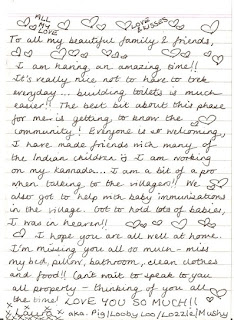 ALL MY LOVE
LOVE & KISSES
To all my beautiful family & friends,
I am having an amazing time!!
It's really nice not to have to trek
everyday... building toilets is much
easier!! The best bit about this phase
for me is getting to know the
community! Everyone is so welcoming,
I have made friends with many of
the Indian children :) I am working
on my kannada... I am a bit of a pro
when talking to the villagers!! We
also got to help with baby immunizations
in the village. Got to hold lots of babies,
I was in heaven!!
I hope you are all well at home.
I'm missing you all so much - miss
my bed, pillow, bathroom, clean clothes
and food!! Can't wait to speak to you
all properly - thinking of you all
the time! LOVE YOU SO MUCH!!
x Laura x aka. Pig/Looby Loo/Lozzle/Mushy